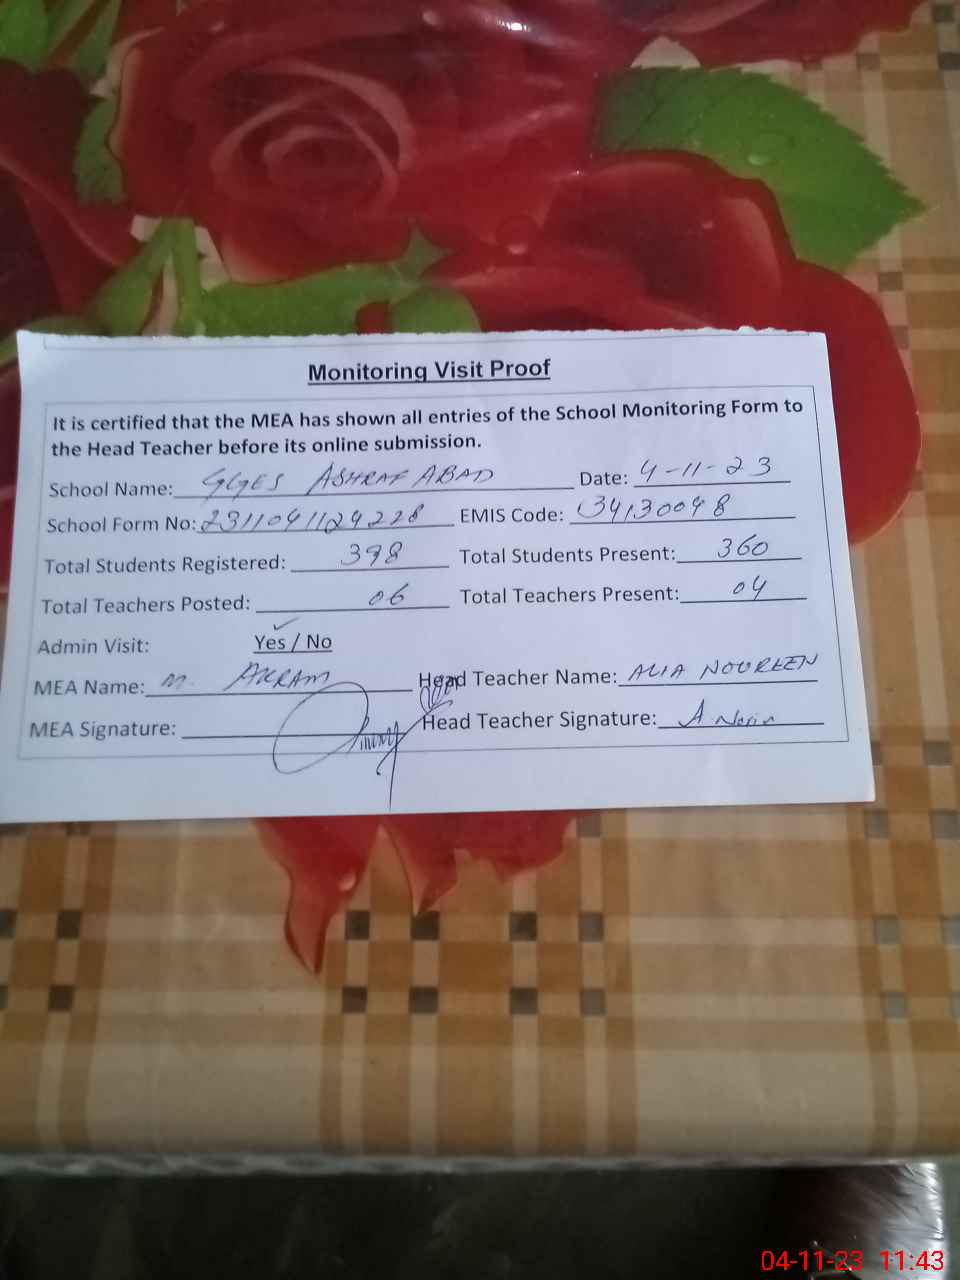 Monitoring Visit Proof
It is certified that the MEA has shown all entries of the School Monitoring Form to
the Head Teacher before its online submission.
School Name: GGES ASHRAF ABAD Date: 4-11-23
School Form No: 2311041124228 EMIS Code: 34130048
Total Students Registered: 398 Total Students Present: 360
Total Teachers Posted: 06 Total Teachers Present: 04
Admin Visit: Yes / No
MEA Name: M. AKRAM Head Teacher Name: ALIA NOUREEN
MEA Signature: Head Teacher Signature: A.
04-11-23 11:43